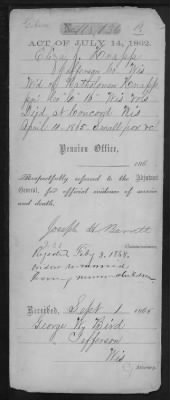 No. 115,136
ACT OF JULY 14, 1862.
Eliza J. Knapp
Jefferson Co Wis
Wid of Knapp
Co "B" 16" Wis Vols
Died at Concord Wis
April 11, 1865. Small pox &c
Pension Office,
186
Respectfully referred to the Adjutant
General, for official evidence of service
and death.
Joseph H. Barrett
Commissioner.
Rejected Feby 3, 1868,
widow remarried,
leaving minor children
Received, Sept 1 1865
George W. Bird
Jefferson
Wis
Attorney.